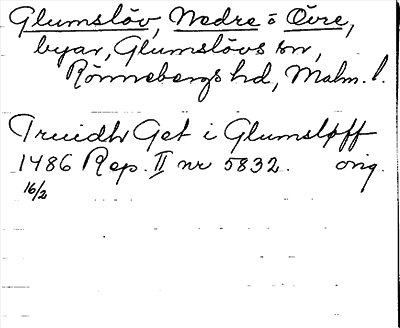 Glumslöv, Nedre o Övre,
byar, Glumslövs sn,
Rönnebergs hd, Malm. l.
Truidh Get i Glumsløff
1486 Rep. II nr 5832. orig.
16/2